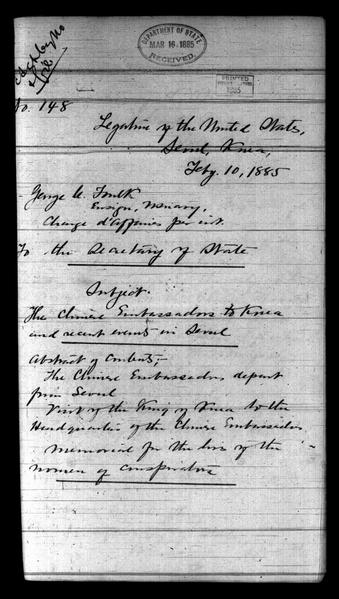 DEPARTMENT OF STATE
MAR 16 1885
RECEIVED
PRINTED
1885
No. 148
Legation of the United States,
Seoul, Korea,
Feby. 10, 1885
George C. Foulk
Ensign,
Charge d'Affaires
To the Secretary of State
Subject.
The Chinese Embassadors to Korea
and recent events in Seoul
Abstract of Contents,-
The Chinese Embassadors depart
from Seoul
Visit of the King of Korea to the
Headquarters of the Chinese Embassadors
Memorial for the lives of the
women of conspirators